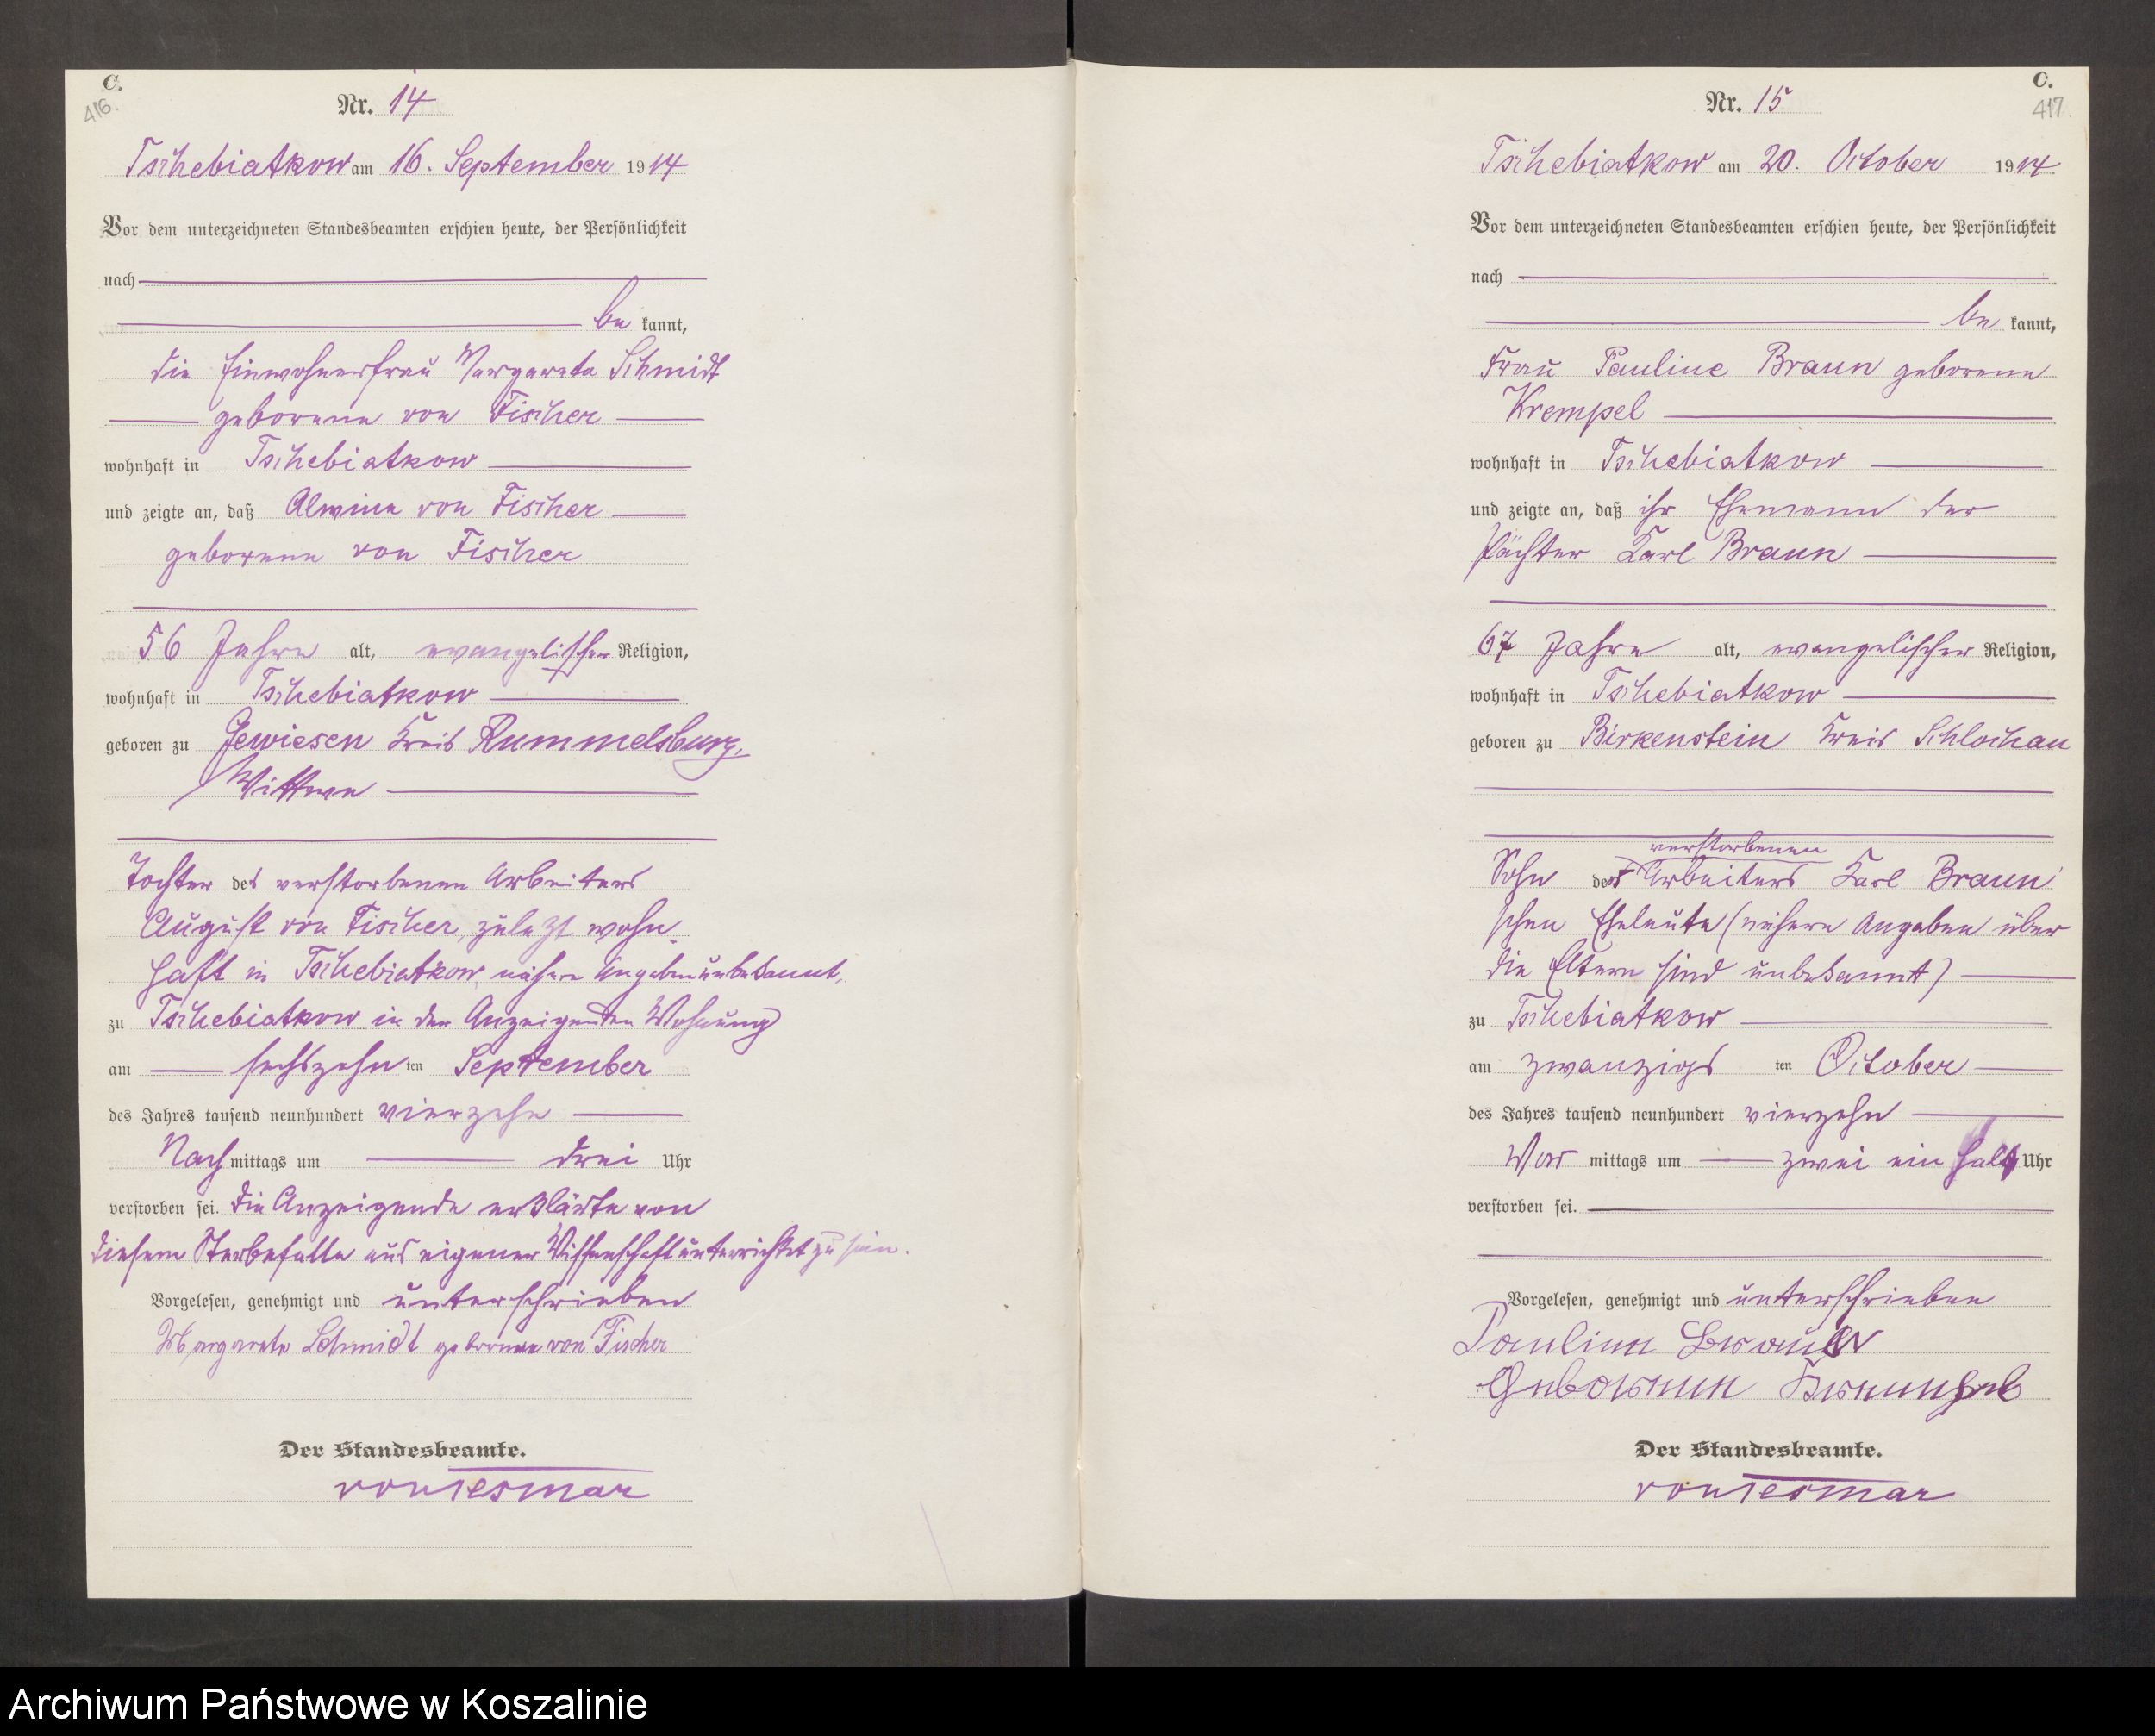 C.
416.
Nr. 14
Tschebiatkow am 16. September 1914
Vor dem unterzeichneten Standesbeamten erschien heute, der Persönlichkeit
nach
be kannt,
die Einwohnerfrau Margareta Schmidt
geborene von Fischer
wohnhaft in Tschebiatkow
und zeigte an, daß Alwine von Fischer
geborene von Fischer
56 Jahre alt, evangelischer Religion,
wohnhaft in Tschebiatkow
geboren zu Gewiesen Kreis Rummelsburg,
Wittwe
Tochter des verstorbenen Arbeiters
August von Fischer, zuletzt wohn-
haft in Tschebiatkow, nähere Angaben unbekannt,
zu Tschebiatkow in der Anzeigenden Wohnung
am sechszehn ten September
des Jahres tausend neunhundert vierzehn
Nach mittags um drei Uhr
verstorben sei. Die Anzeigende erklärte von
diesem Sterbefalle aus eigener Wissenschaft unterrichtet zu sein.
Vorgelesen, genehmigt und unterschrieben
Margarete Schmidt geborene von Fischer
Der Standesbeamte.
von Tesmar
C.
417.
Nr. 15
Tschebiatkow am 20. October 1914
Vor dem unterzeichneten Standesbeamten erschien heute, der Persönlichkeit
nach
be kannt,
Frau Pauline Braun geborene
Krempel
wohnhaft in Tschebiatkow
und zeigte an, daß ihr Ehemann der
Pächter Karl Braun
67 Jahre alt, evangelischer Religion,
wohnhaft in Tschebiatkow
geboren zu Birkenstein Kreis Schlochau
verstorbenen
Sohn der Arbeiters Karl Braun'
schen Eheleute (nähere Angaben über
die Eltern sind unbekannt)
zu Tschebiatkow
am zwanzigs ten October
des Jahres tausend neunhundert vierzehn
Vor mittags um zwei ein halb Uhr
verstorben sei.
Vorgelesen, genehmigt und unterschrieben
Pauline Braun
Geborenen Krempel
Der Standesbeamte.
von Tesmar
Archiwum Państwowe w Koszalinie